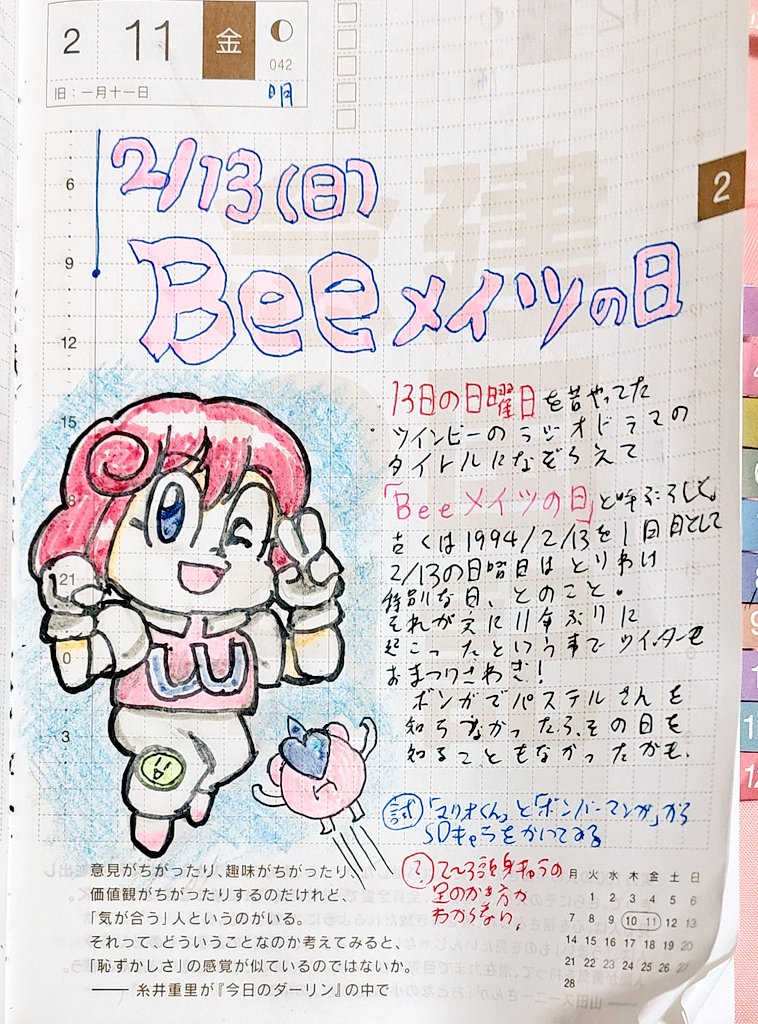 2 11 金
042
旧:一月十一日
明
2/13(日)
Beeメイツの日
2
6
9
12
15
18
21
0
3
13日の日曜日を昔やってた
ツインビーのラジオドラマの
タイトルになぞらえて
「Beeメイツの日」と呼ぶらしく、
古くは1994/2/13を1回目として
2/13の日曜日はとりわけ
特別な日、とのこと。
それが実に11年ぶりに
起こったという事でツイッターも
おまつりさわぎ!
ボンガでパステルさんを
知らなかったら、その日を
知ることもなかったかも、
試 「マリオくん」と「ボンバーマンガ」から
SDキャラをかいてみる
? 2〜3頭身キャラの
足のかき方が
わからない。
意見がちがったり、趣味がちがったり、
価値観がちがったりするのだけれど、
「気が合う」人というのがいる。
それって、どういうことなのか考えてみると、
「恥ずかしさ」の感覚が似ているのではないか。
―― 糸井重里が『今日のダーリン』の中で
月 火 水 木 金 土 日
1 2 3 4 5 6
7 8 9 10 11 12 13
14 15 16 17 18 19 20
21 22 23 24 25 26 27
28